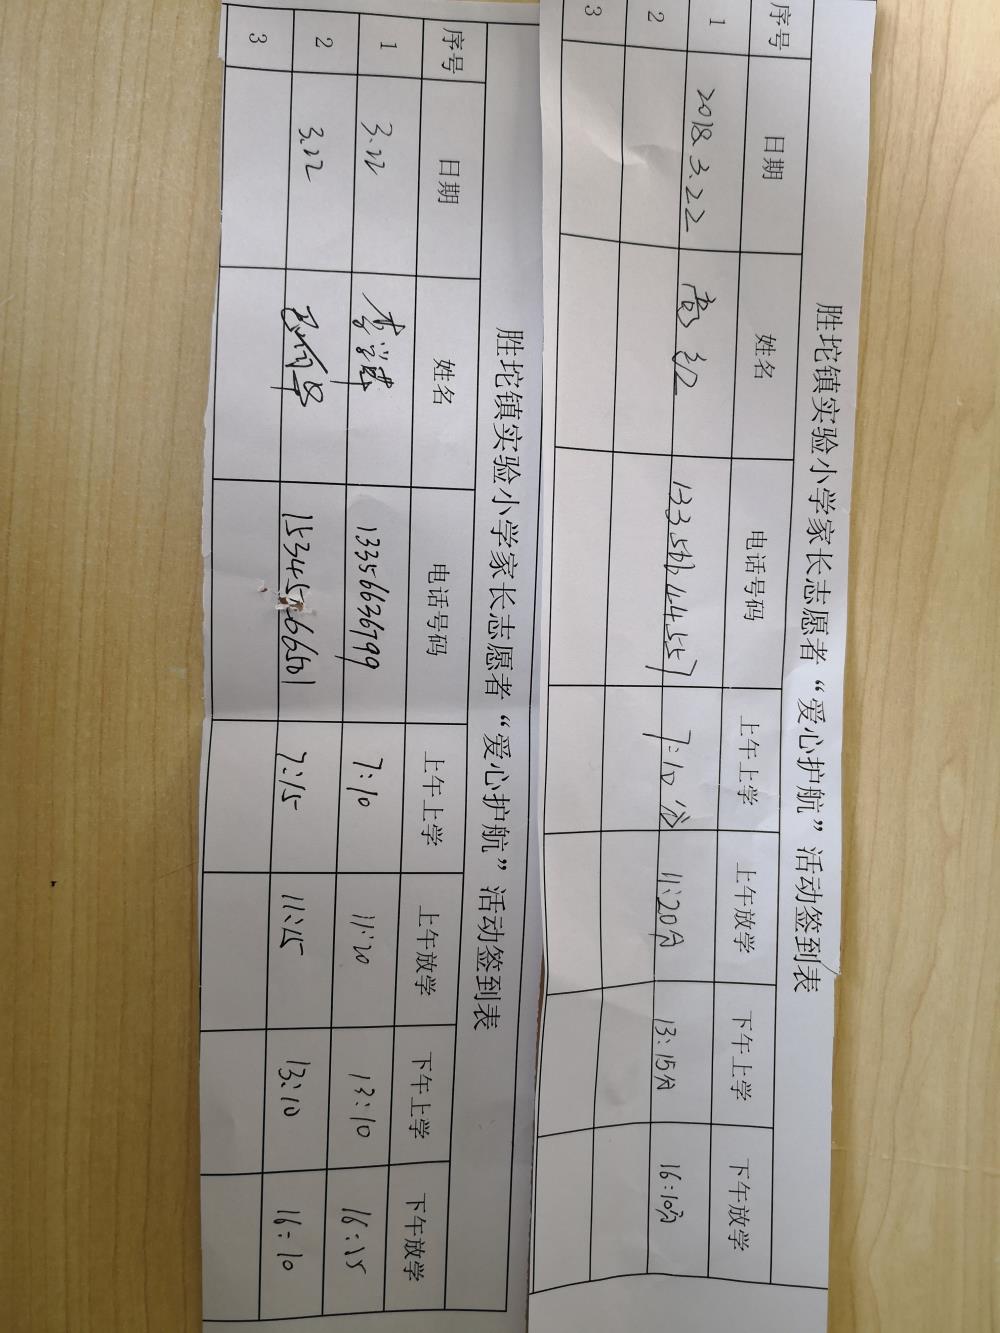 胜坨镇实验小学家长志愿者“爱心护航”活动签到表
序号 日期 姓名 电话号码 上午上学 上午放学 下午上学 下午放学
1 2018.3.22 高 7:10分 11:20分 13:15分 16:10分
2
3
胜坨镇实验小学家长志愿者“爱心护航”活动签到表
序号 日期 姓名 电话号码 上午上学 上午放学 下午上学 下午放学
1 3.22 李 13356626799 7:10 11:20 13:10 16:15
2 3.22 7:15 11:15 13:10 16:10
3